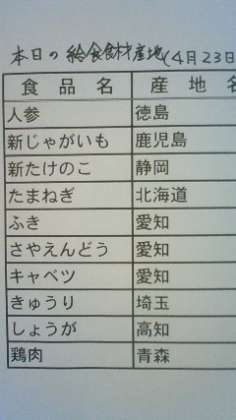 本日の給食食材産地(4月23日
食品名 産地名
人参 徳島
新じゃがいも 鹿児島
新たけのこ 静岡
たまねぎ 北海道
ふき 愛知
さやえんどう 愛知
キャベツ 愛知
きゅうり 埼玉
しょうが 高知
鶏肉 青森